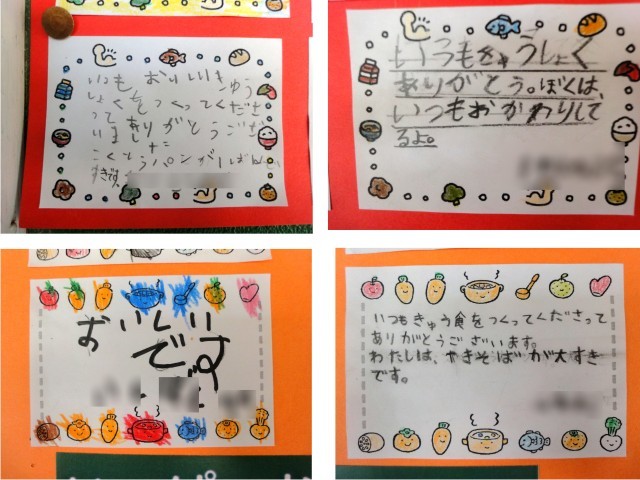 いつもおいしいきゅう
しょくをつくってくださ
ってありがとうござ
いました
こくとうパンがいちばんす
すきです。
いつもきゅうしょく
ありがとう。ぼくは、
いつもおかわりして
るよ。
おいしい
です
いつもきゅう食をつくってくださって
ありがとうございます。
わたしは、やきそばが大すき
です。